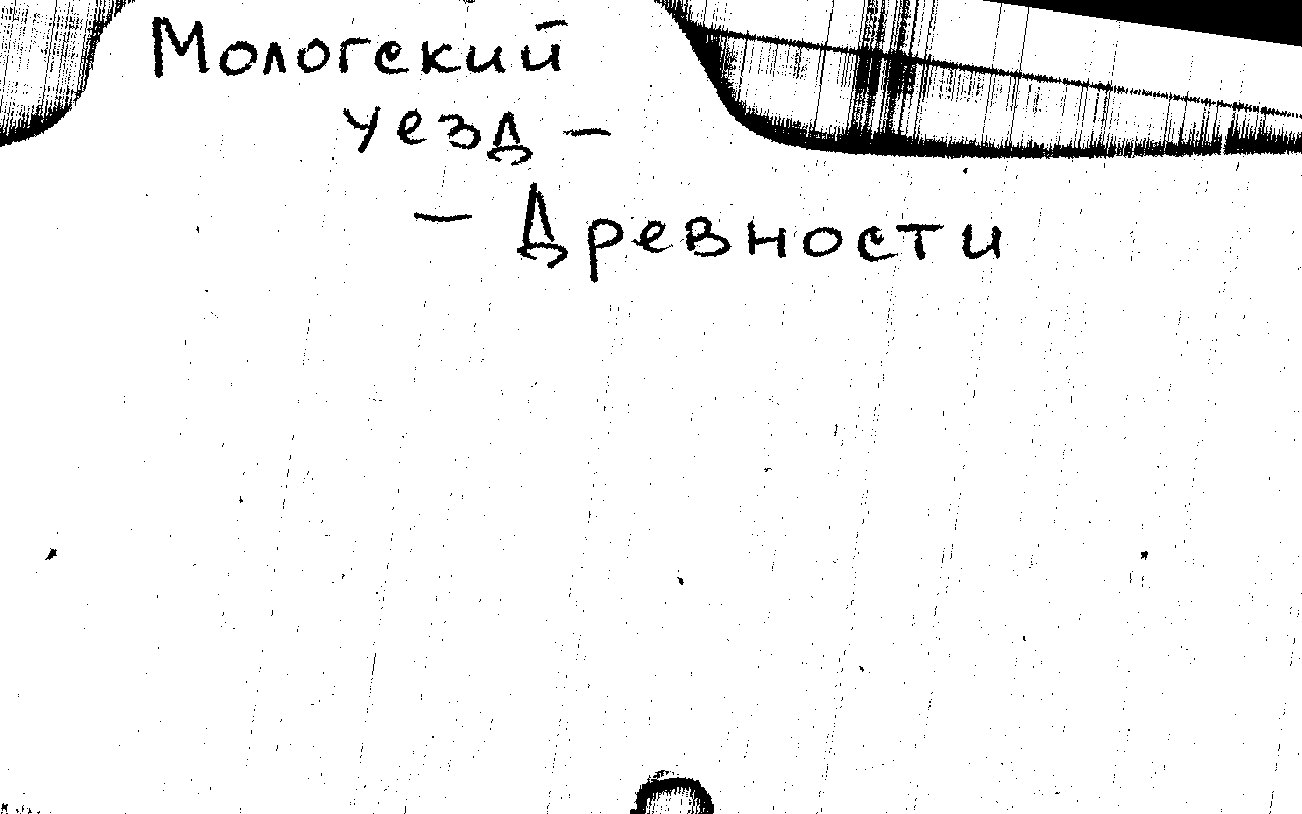 Мологский
уезд –
– Древности